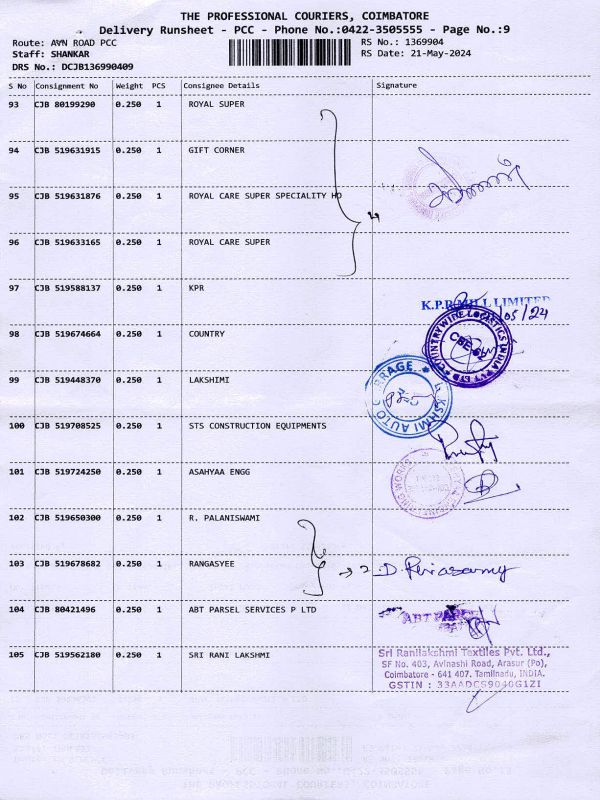 THE PROFESSIONAL COURIERS, COIMBATORE
Delivery Runsheet - PCC - Phone No.:0422-3505555 - Page No.:9
Route: AVN ROAD PCC
RS No.: 1369904
Staff: SHANKAR
RS Date: 21-May-2024
DRS No.: DCJB136990409
S No Consignment No Weight PCS Consignee Details Signature
93 CJB 80199290 0.250 1 ROYAL SUPER
94 CJB 519631915 0.250 1 GIFT CORNER
95 CJB 519631876 0.250 1 ROYAL CARE SUPER SPECIALITY HO
4
96 CJB 519633165 0.250 1 ROYAL CARE SUPER
97 CJB 519588137 0.250 1 KPR
K.P.R MILL LIMITED
05/24
98 CJB 519674664 0.250 1 COUNTRY
COUNTRYWIDE LOGISTICS INDIA PVT LTD
CBE
99 CJB 519448370 0.250 1 LAKSHIMI
LAKSHMI AUTO GARRAGE
100 CJB 519708525 0.250 1 STS CONSTRUCTION EQUIPMENTS
101 CJB 519724250 0.250 1 ASAHYAA ENGG
WORKS
102 CJB 519650300 0.250 1 R. PALANISWAMI
103 CJB 519678682 0.250 1 RANGASYEE
2 D. Periasamy
104 CJB 80421496 0.250 1 ABT PARSEL SERVICES P LTD
ABT
105 CJB 519562180 0.250 1 SRI RANI LAKSHMI
Sri Ranilakshmi Textiles Pvt. Ltd.,
SF No. 403, Avinashi Road, Arasur (Po),
Coimbatore - 641 407. Tamilnadu, INDIA.
GSTIN : 33AADCS9040G1ZI